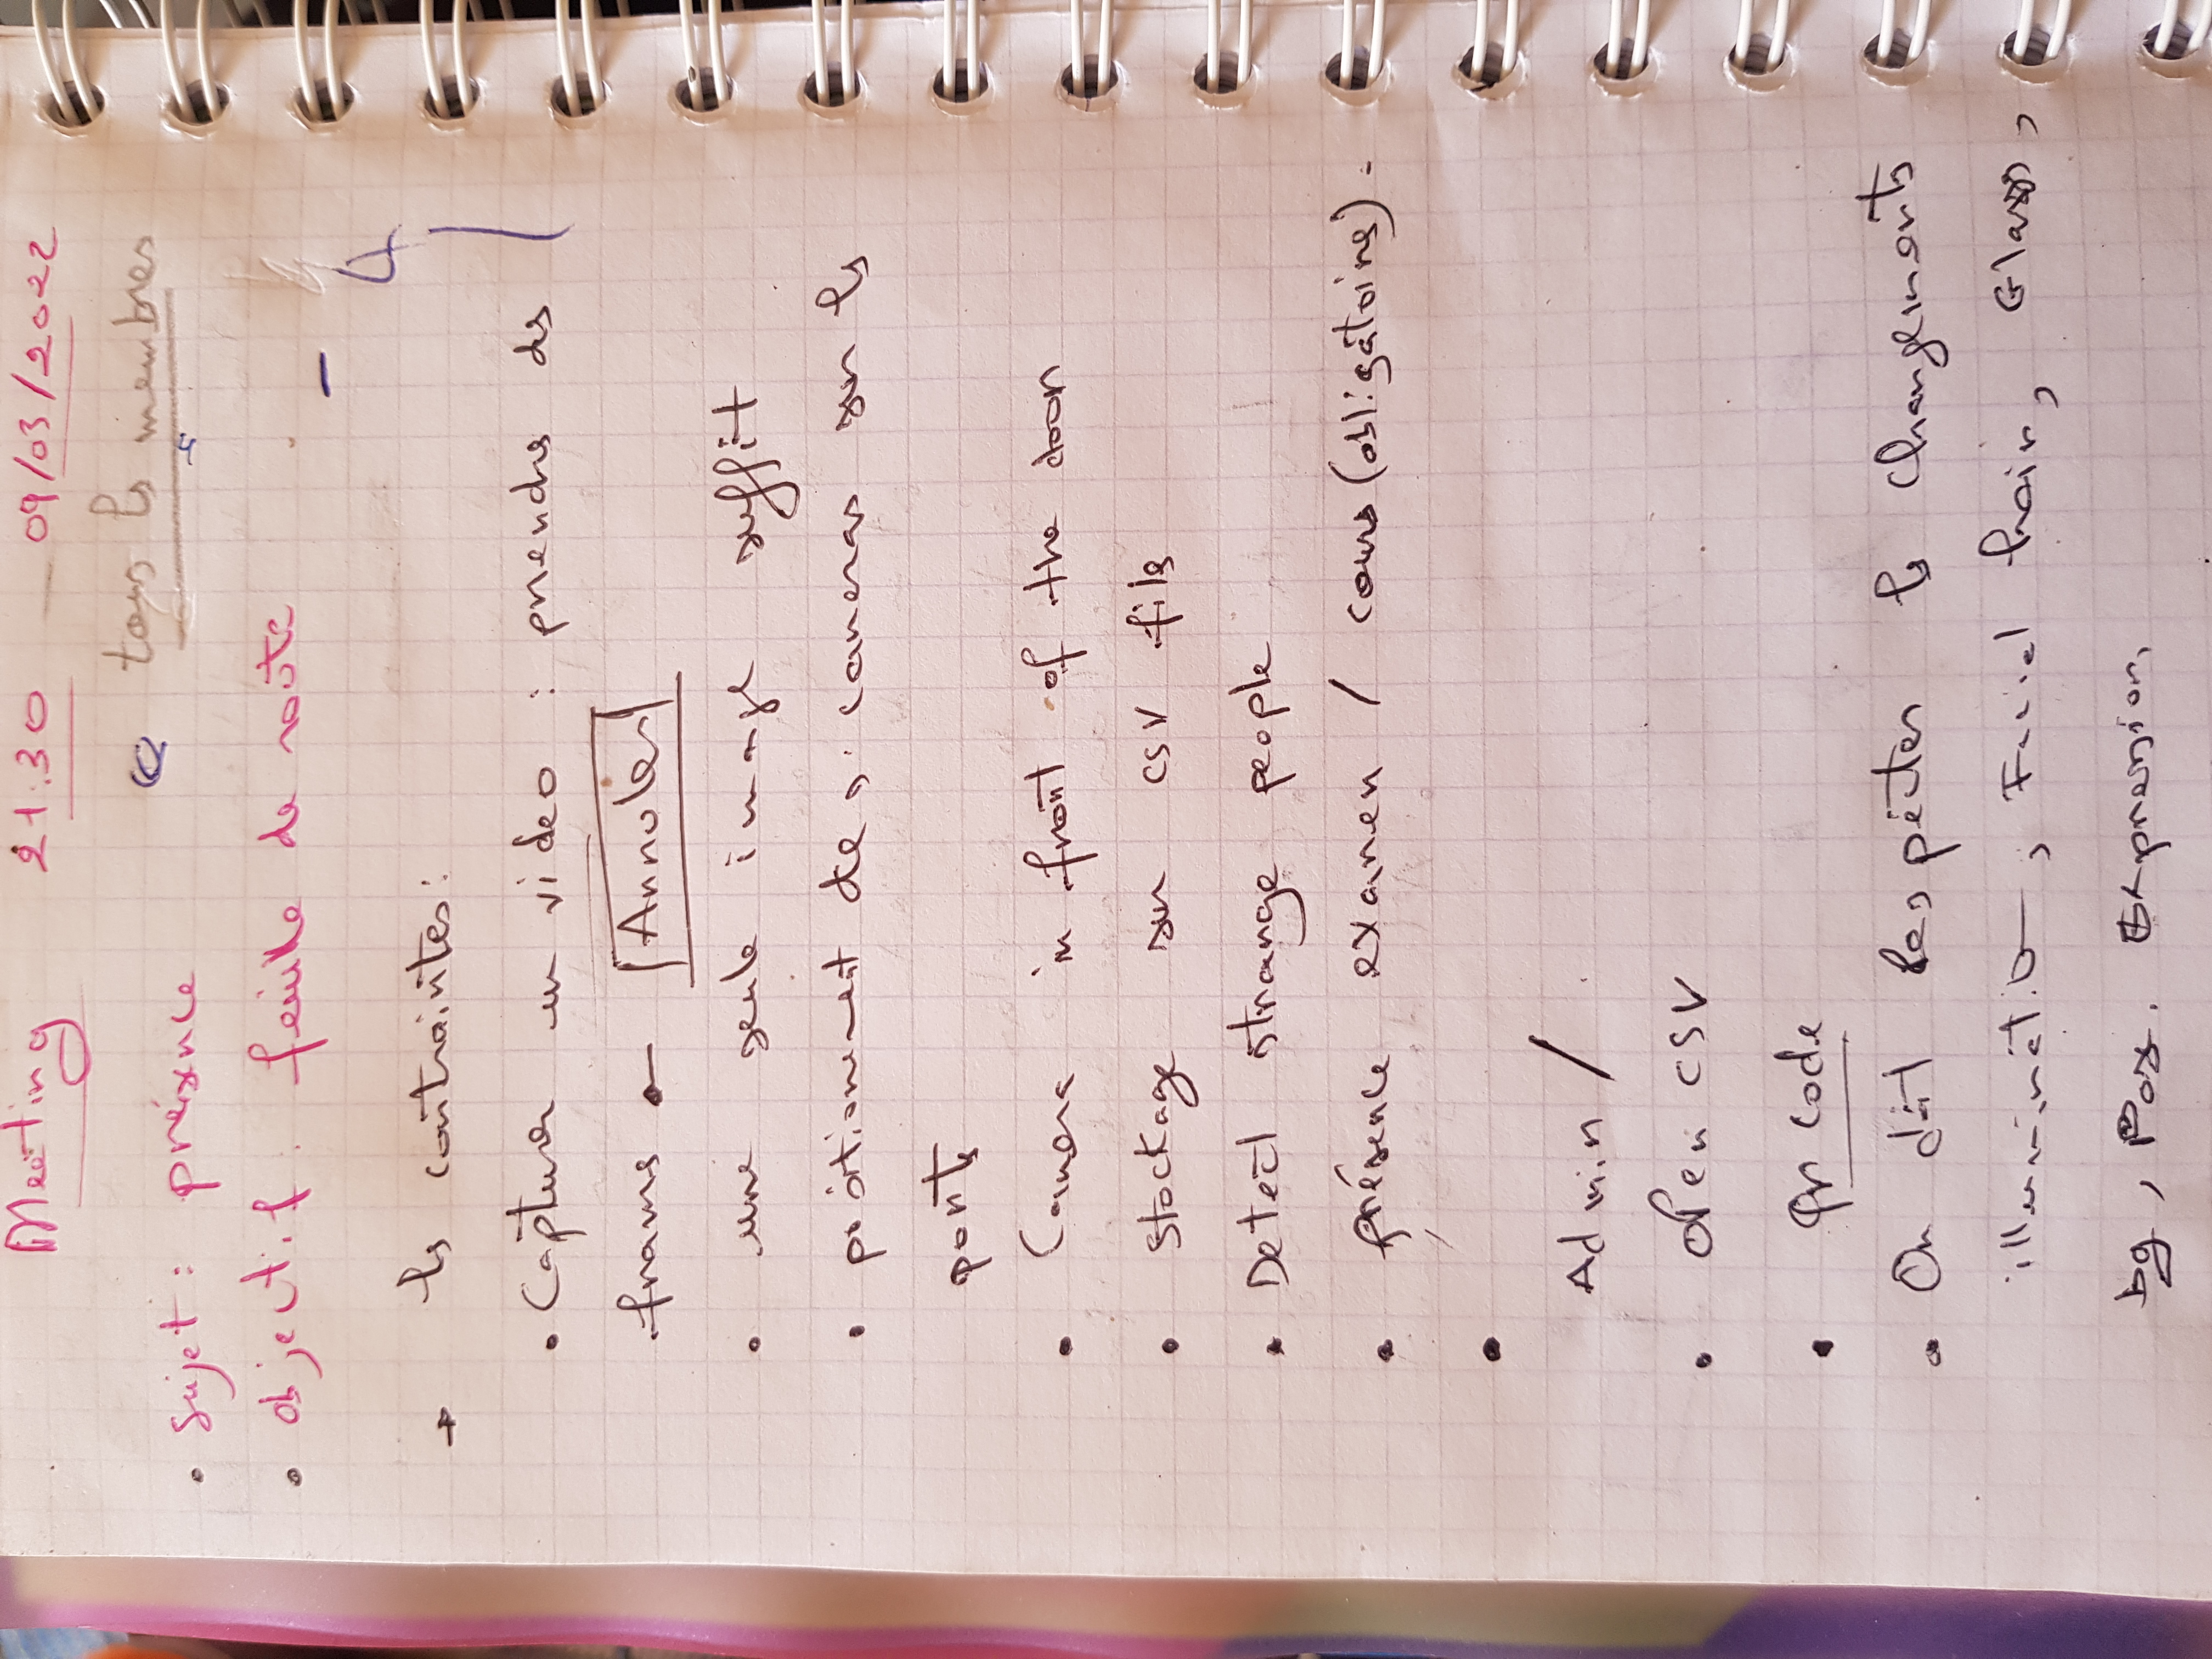 Meeting 21:30 09/03/2022
tous les membres
• sujet : présence
• objectif : feuille de route
→ les contraintes :
• Capturer un video : prendre des
frames — Annuler
• une seule image suffit
• positionement des cameras sur les
ports
• Camera in front of the door
• stockage sur csv file
• Detect strange people
• présence examen / cours (obligatoire).
•
Admin /
• open CSV
• Qr code
• On doit Respecter les changements
illumination, Facial hair, Glass,
bg, Pose. Expression,